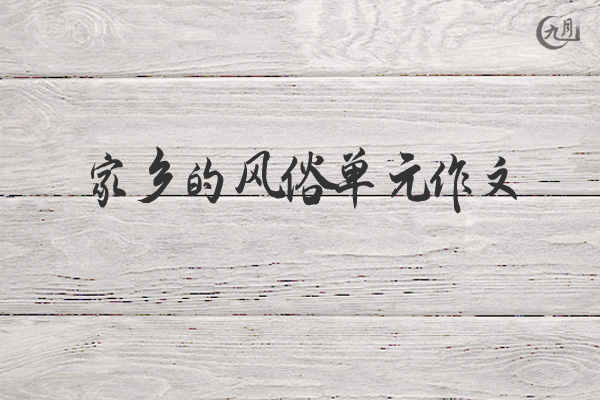 九月
家乡的风俗单元作文